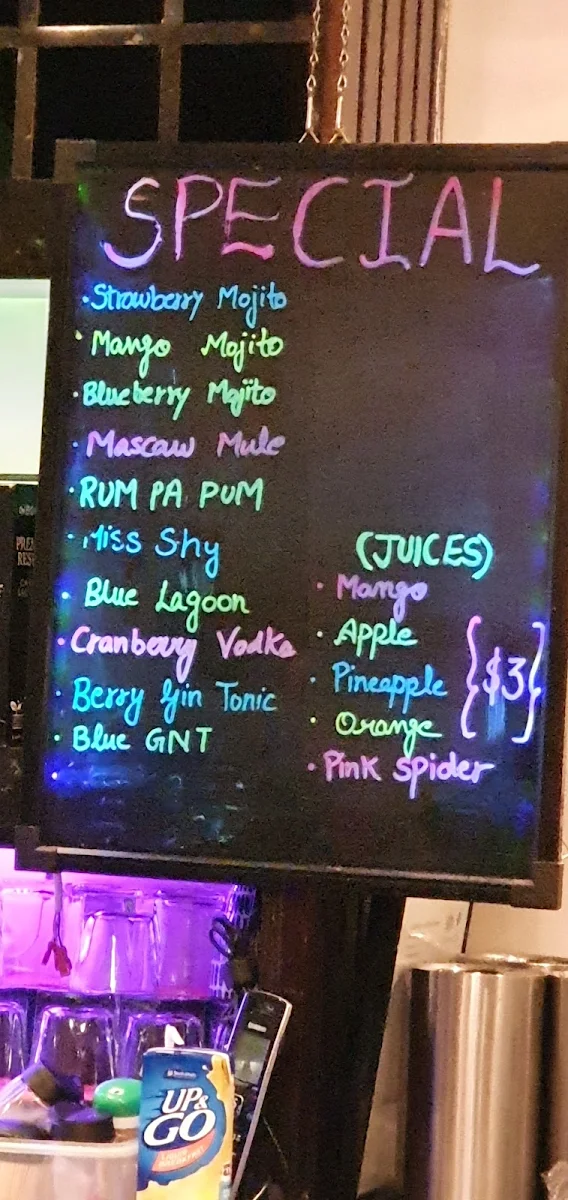 SPECIAL
· Strawberry Mojito
· Mango Mojito
· Blueberry Mojito
· Mascaw Mule
· RUM PA PUM
· Miss Shy
· Blue Lagoon
· Cranberry Vodka
· Berry Gin Tonic
· Blue GNT
·
(JUICES)
· Mango
· Apple
· Pineapple
· Orange
· Pink Spider
{$3}
UP&
GO